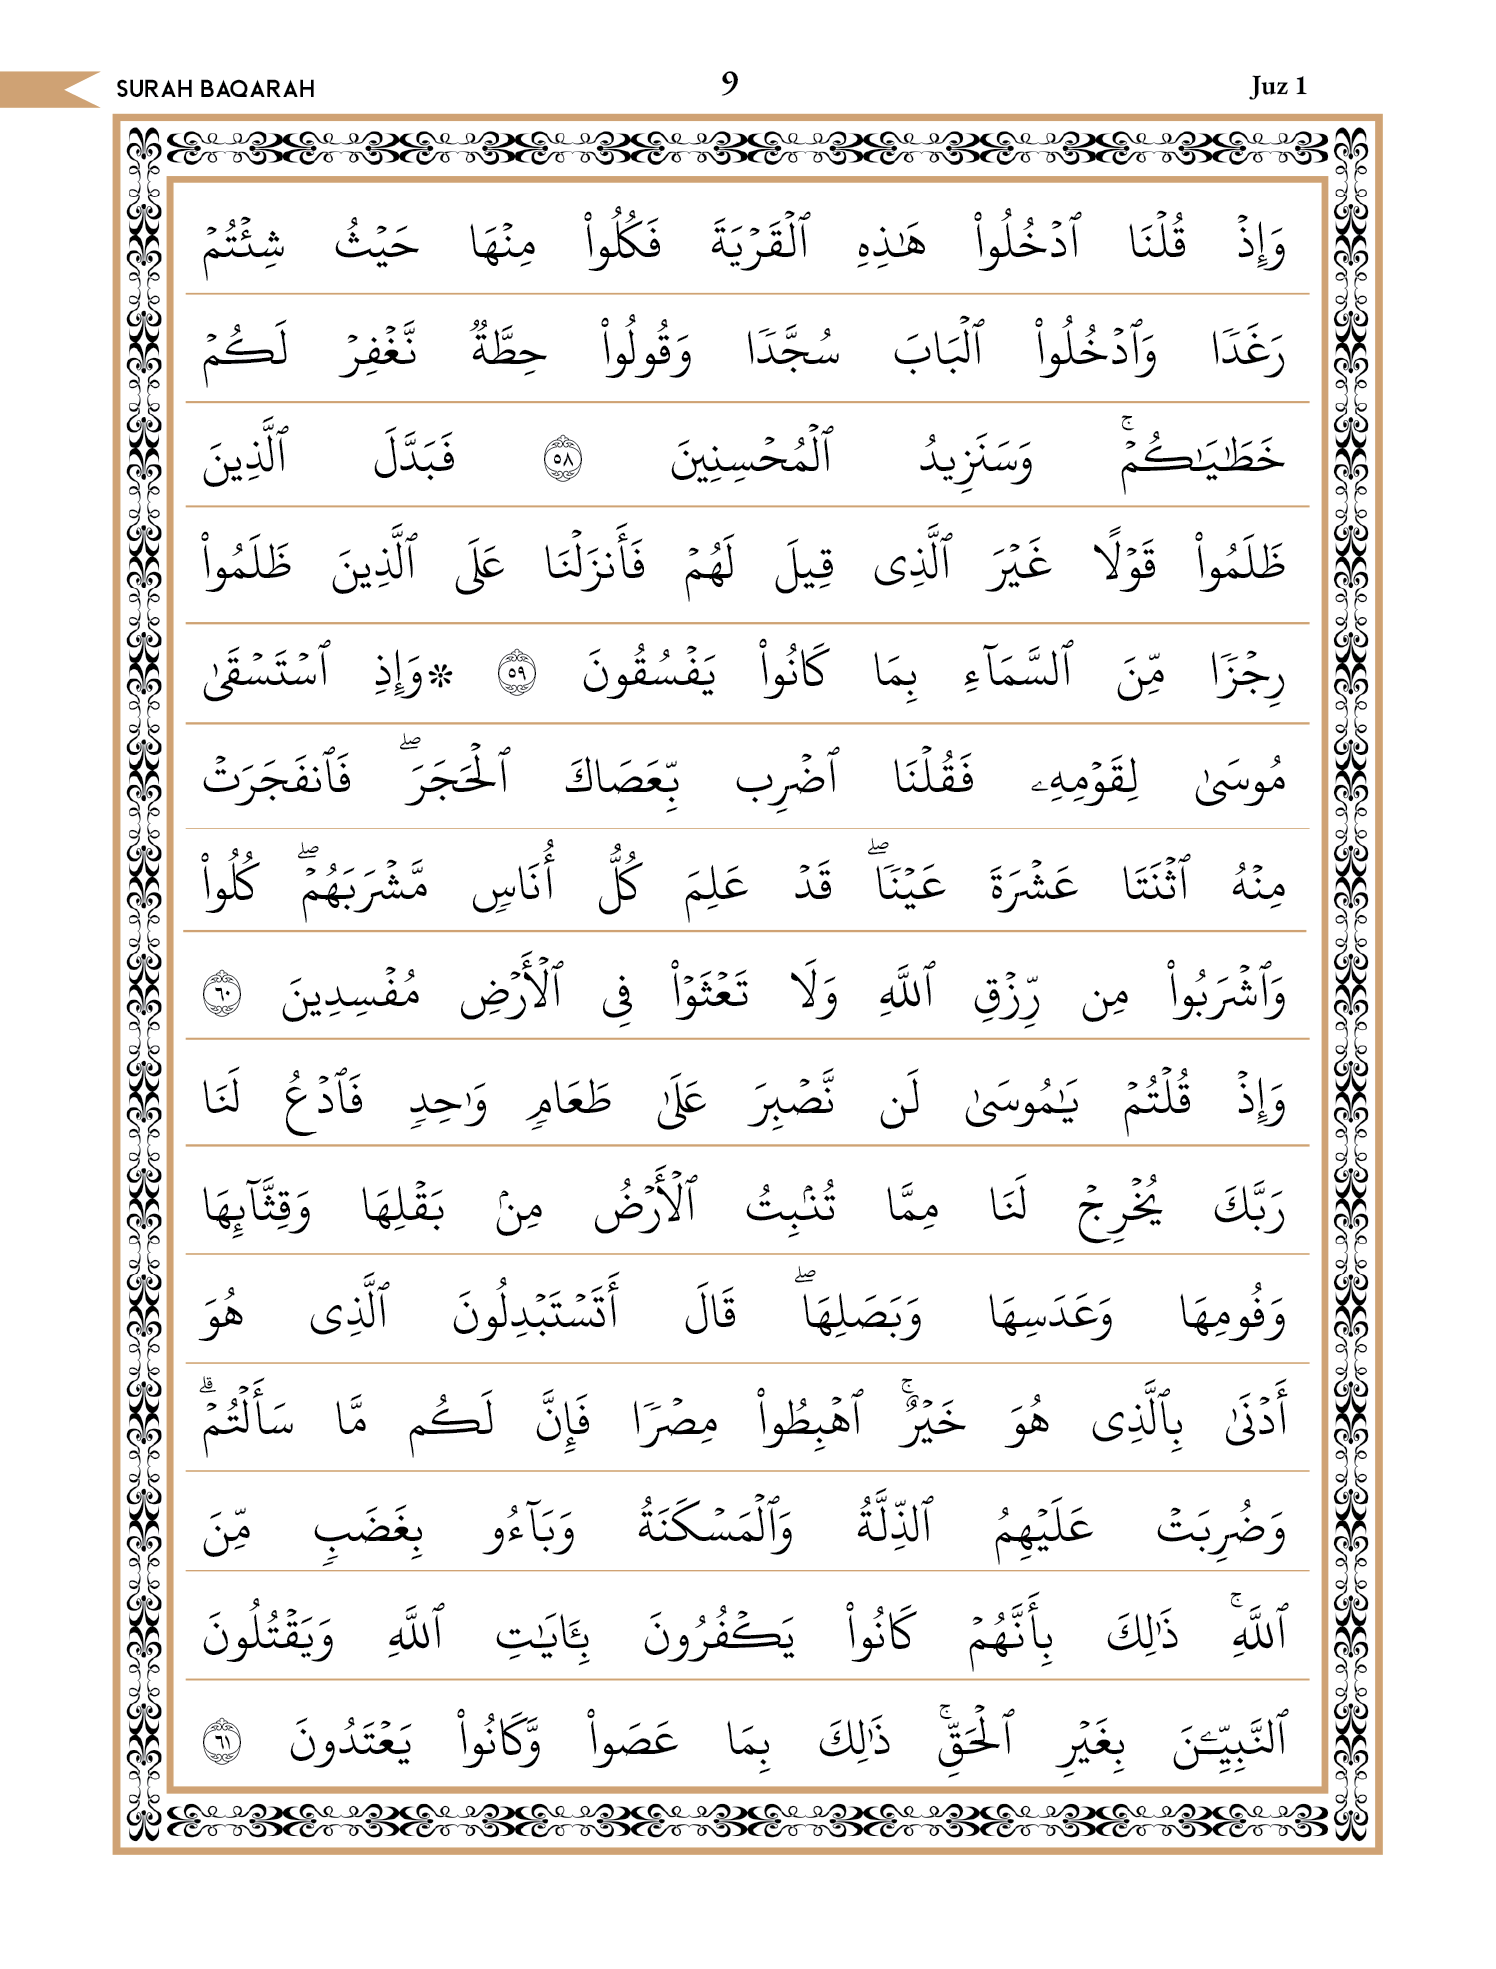 SURAH BAQARAH
9
Juz 1
وَإِذۡ قُلۡنَا ٱدۡخُلُواْ هَٰذِهِ ٱلۡقَرۡيَةَ فَكُلُواْ مِنۡهَا حَيۡثُ شِئۡتُمۡ
رَغَدٗا وَٱدۡخُلُواْ ٱلۡبَابَ سُجَّدٗا وَقُولُواْ حِطَّةٞ نَّغۡفِرۡ لَكُمۡ
خَطَٰيَٰكُمۡۚ وَسَنَزِيدُ ٱلۡمُحۡسِنِينَ ٥٨ فَبَدَّلَ ٱلَّذِينَ
ظَلَمُواْ قَوۡلًا غَيۡرَ ٱلَّذِي قِيلَ لَهُمۡ فَأَنزَلۡنَا عَلَى ٱلَّذِينَ ظَلَمُواْ
رِجۡزٗا مِّنَ ٱلسَّمَآءِ بِمَا كَانُواْ يَفۡسُقُونَ ٥٩ *وَإِذِ ٱسۡتَسۡقَىٰ
مُوسَىٰ لِقَوۡمِهِۦ فَقُلۡنَا ٱضۡرِب بِّعَصَاكَ ٱلۡحَجَرَۖ فَٱنفَجَرَتۡ
مِنۡهُ ٱثۡنَتَا عَشۡرَةَ عَيۡنٗاۖ قَدۡ عَلِمَ كُلُّ أُنَاسٖ مَّشۡرَبَهُمۡۖ كُلُواْ
وَٱشۡرَبُواْ مِن رِّزۡقِ ٱللَّهِ وَلَا تَعۡثَوۡاْ فِي ٱلۡأَرۡضِ مُفۡسِدِينَ ٦٠
وَإِذۡ قُلۡتُمۡ يَٰمُوسَىٰ لَن نَّصۡبِرَ عَلَىٰ طَعَامٖ وَٰحِدٖ فَٱدۡعُ لَنَا
رَبَّكَ يُخۡرِجۡ لَنَا مِمَّا تُنۢبِتُ ٱلۡأَرۡضُ مِنۢ بَقۡلِهَا وَقِثَّآئِهَا
وَفُومِهَا وَعَدَسِهَا وَبَصَلِهَاۖ قَالَ أَتَسۡتَبۡدِلُونَ ٱلَّذِي هُوَ
أَدۡنَىٰ بِٱلَّذِي هُوَ خَيۡرٌۚ ٱهۡبِطُواْ مِصۡرٗا فَإِنَّ لَكُم مَّا سَأَلۡتُمۡۗ
وَضُرِبَتۡ عَلَيۡهِمُ ٱلذِّلَّةُ وَٱلۡمَسۡكَنَةُ وَبَآءُو بِغَضَبٖ مِّنَ
ٱللَّهِۚ ذَٰلِكَ بِأَنَّهُمۡ كَانُواْ يَكۡفُرُونَ بِـَٔايَٰتِ ٱللَّهِ وَيَقۡتُلُونَ
ٱلنَّبِيِّـۧنَ بِغَيۡرِ ٱلۡحَقِّۚ ذَٰلِكَ بِمَا عَصَواْ وَّكَانُواْ يَعۡتَدُونَ ٦١